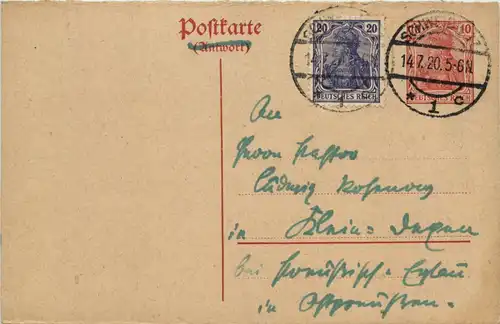 Postkarte
(Antwort)
20 20
DEUTSCHES REICH
10
DEUTSCHES REICH
14.7.20. 5-6N.
* 1 c
An
Herrn Pastor
Ludwig
in Klein-Dexen
bei Preußisch-Eylau
in Ostpreußen.